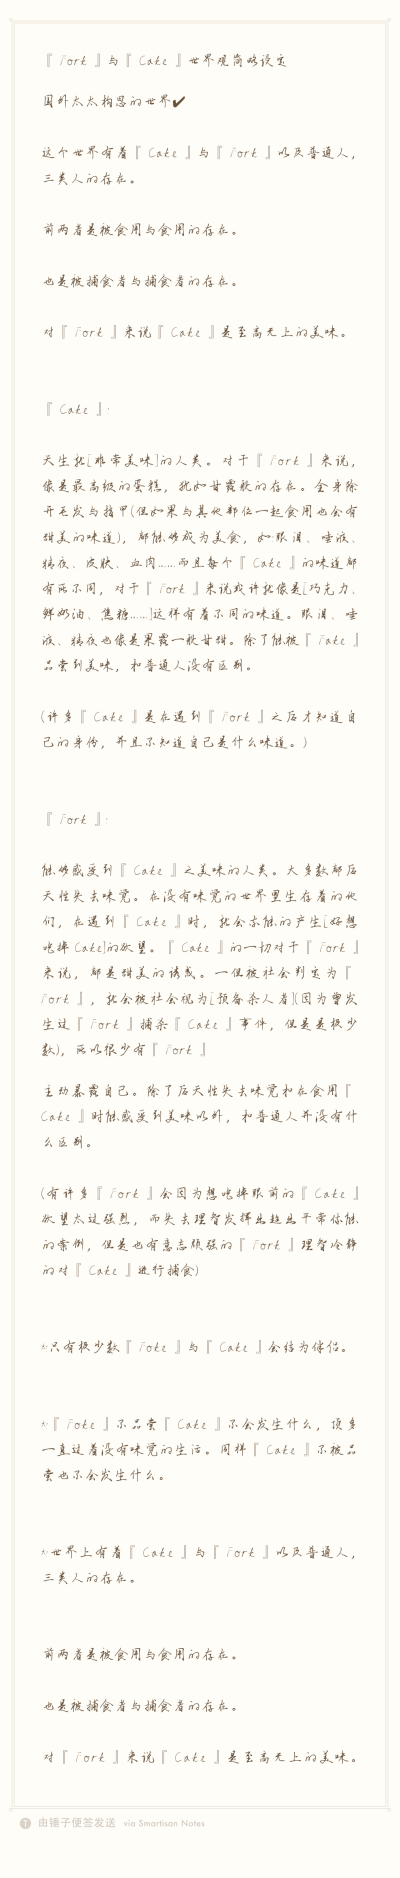 『 Fork 』与『 Cake 』世界观简略设定
国外太太构思的世界✔
这个世界有着『 Cake 』与『 Fork 』以及普通人，
三类人的存在。
前两者是被食用与食用的存在。
也是被捕食者与捕食者的存在。
对『 Fork 』来说『 Cake 』是至高无上的美味。
『 Cake 』:
天生就[非常美味]的人类。对于『 Fork 』来说，
像是最高级的蛋糕，犹如甘露般的存在。全身除
开毛发与指甲(但如果与其他部位一起食用也会有
甜美的味道)，都能够成为美食，如:眼泪、唾液、
精液、皮肤、血肉……而且每个『 Cake 』的味道都
有所不同，对于『 Fork 』来说或许就像是[巧克力、
鲜奶油、焦糖……]这样有着不同的味道。眼泪、唾
液、精液也像是果露一般甘甜。除了能被『 Fake 』
品尝到美味，和普通人没有区别。
(许多『 Cake 』是在遇到『 Fork 』之后才知道自
己的身份，并且不知道自己是什么味道。)
『 Fork 』:
能够感受到『 Cake 』之美味的人类。大多数都后
天性失去味觉。在没有味觉的世界里生存着的他
们，在遇到『 Cake 』时，就会本能的产生[好想
吃掉 Cake]的欲望。『 Cake 』的一切对于『 Fork 』
来说，都是甜美的诱惑。一但被社会判定为『
Fork 』，就会被社会视为[预备杀人者](因为曾发
生过『 Fork 』捕杀『 Cake 』事件，但是是极少
数)，所以很少有『 Fork 』
主动暴露自己。除了后天性失去味觉和在食用『
Cake 』时能感受到美味以外，和普通人并没有什
么区别。
(有许多『 Fork 』会因为想吃掉眼前的『 Cake 』
欲望太过强烈，而失去理智发挥出超出平常体能
的案例，但是也有意志顽强的『 Fork 』理智冷静
的对『 Cake 』进行捕食)
*只有极少数『 Foke 』与『 Cake 』会结为伴侣。
*『 Foke 』不品尝『 Cake 』不会发生什么，顶多
一直过着没有味觉的生活。同样『 Cake 』不被品
尝也不会发生什么。
*世界上有着『 Cake 』与『 Fork 』以及普通人，
三类人的存在。
前两者是被食用与食用的存在。
也是被捕食者与捕食者的存在。
对『 Fork 』来说『 Cake 』是至高无上的美味。
由锤子便签发送 via Smartisan Notes